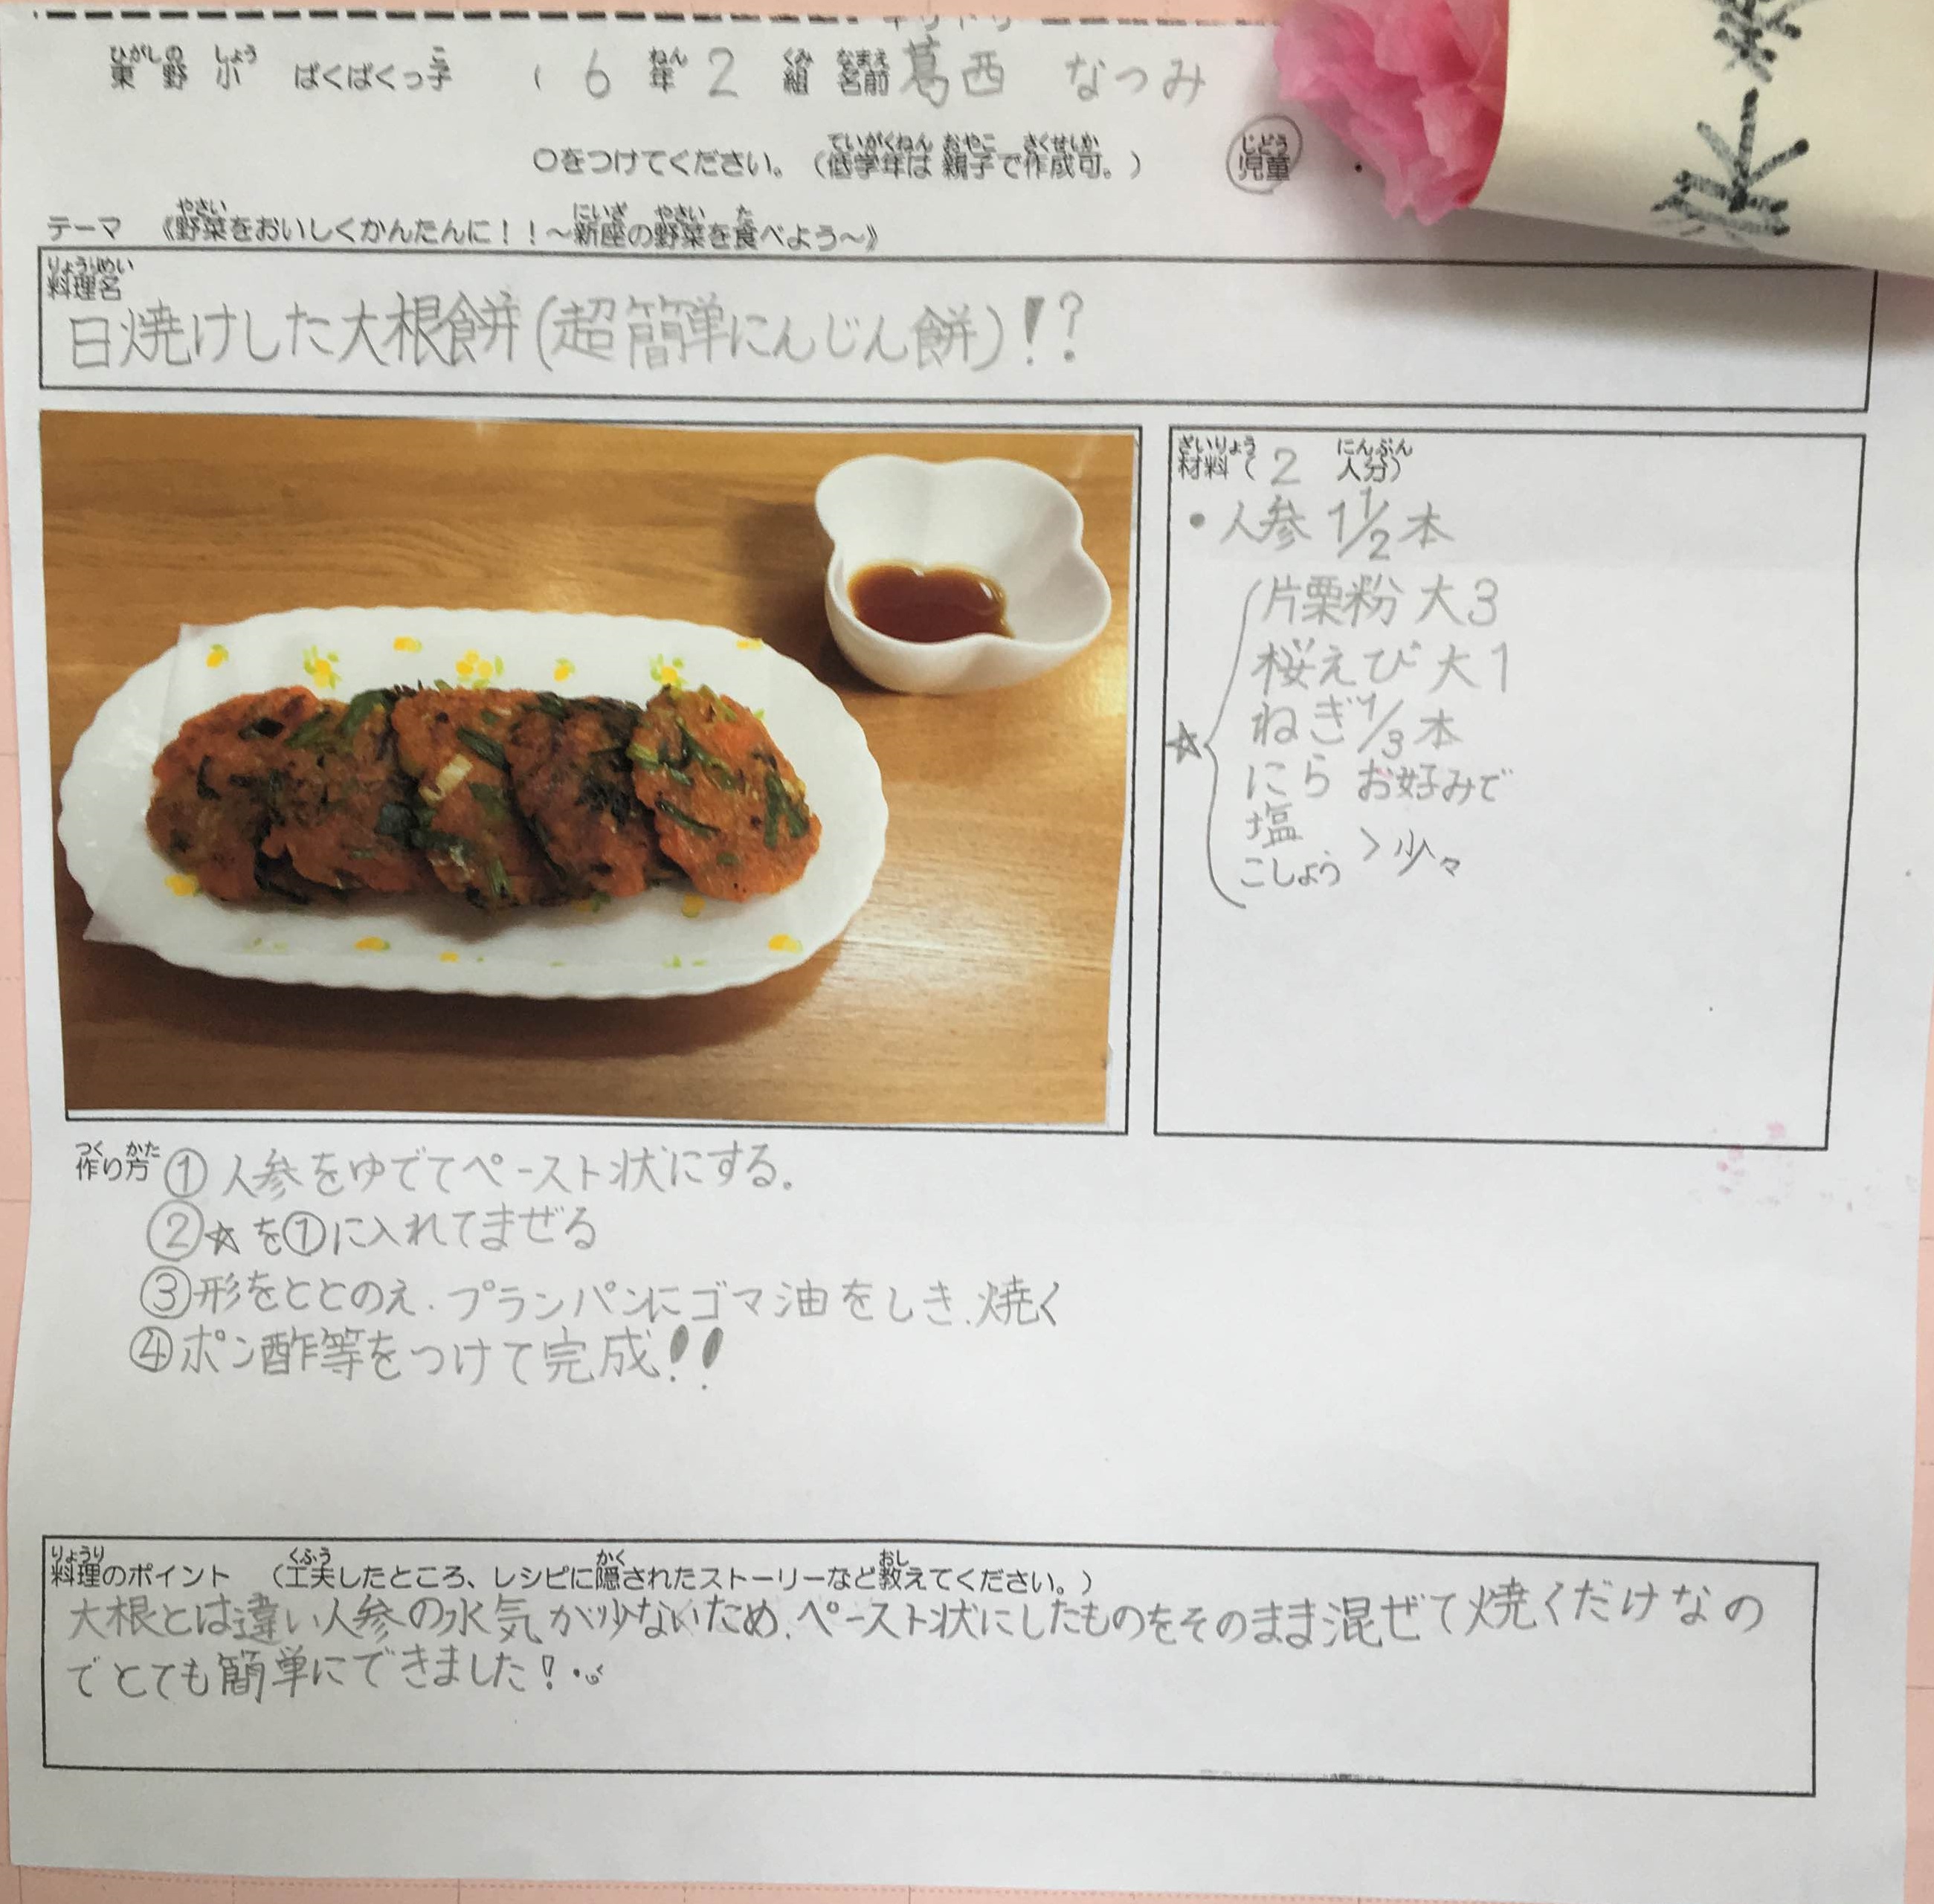 東野小 ぱくぱくっ子 ( 6 年 2 組 名前 葛西 なつみ
○をつけてください。(低学年は 親子で作成可。) 児童 ・
テーマ 《野菜をおいしくかんたんに！！～新座の野菜を食べよう～》
料理名
日焼けした大根餅(超簡単にんじん餅)!?
材料( 2 人分)
・人参 1 1/2 本
片栗粉 大3
桜えび 大1
ねぎ 1/3 本
☆
にら お好みで
塩
こしょう > 少々
作り方 ① 人参をゆでてペースト状にする。
②☆を①に入れてまぜる
③形をととのえ、プランパンにゴマ油をしき、焼く
④ポン酢等をつけて完成!!
料理のポイント (工夫したところ、レシピに隠されたストーリーなど教えてください。)
大根とは違い人参の水気が少ないため、ペースト状にしたものをそのまま混ぜて焼くだけなの
でとても簡単にできました!